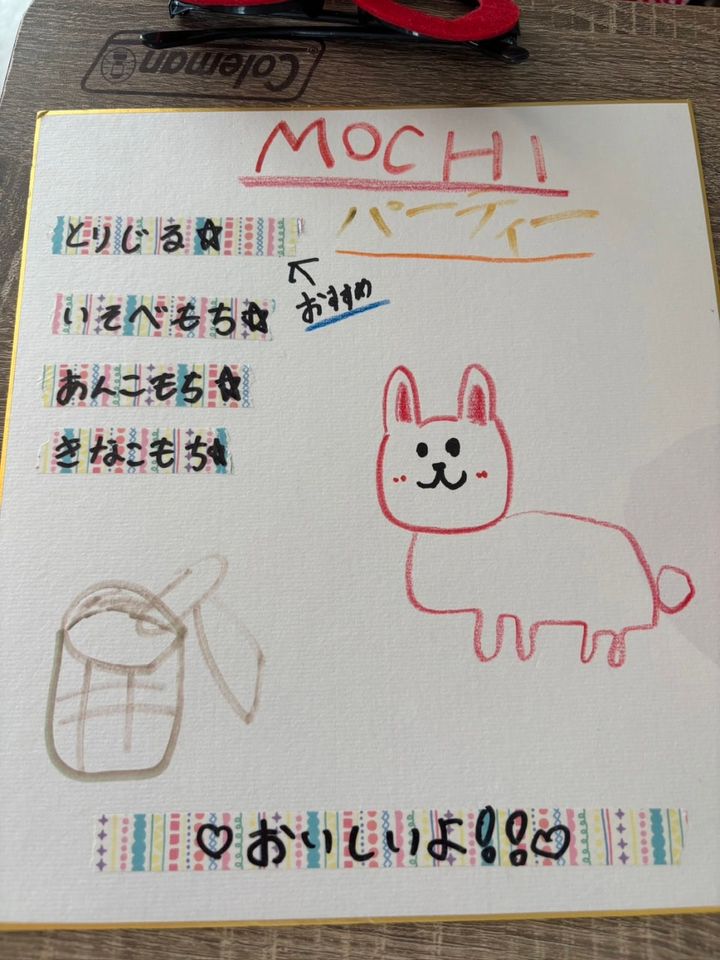 Coleman
MOCHI
パーティー
とりじる☆
おすすめ
いそべもち☆
あんこもち☆
きなこもち☆
♡おいしいよ!!♡